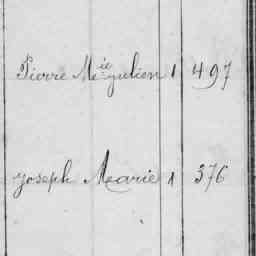 Pierre M.ie Julien 1 497
Joseph Marie 1 376